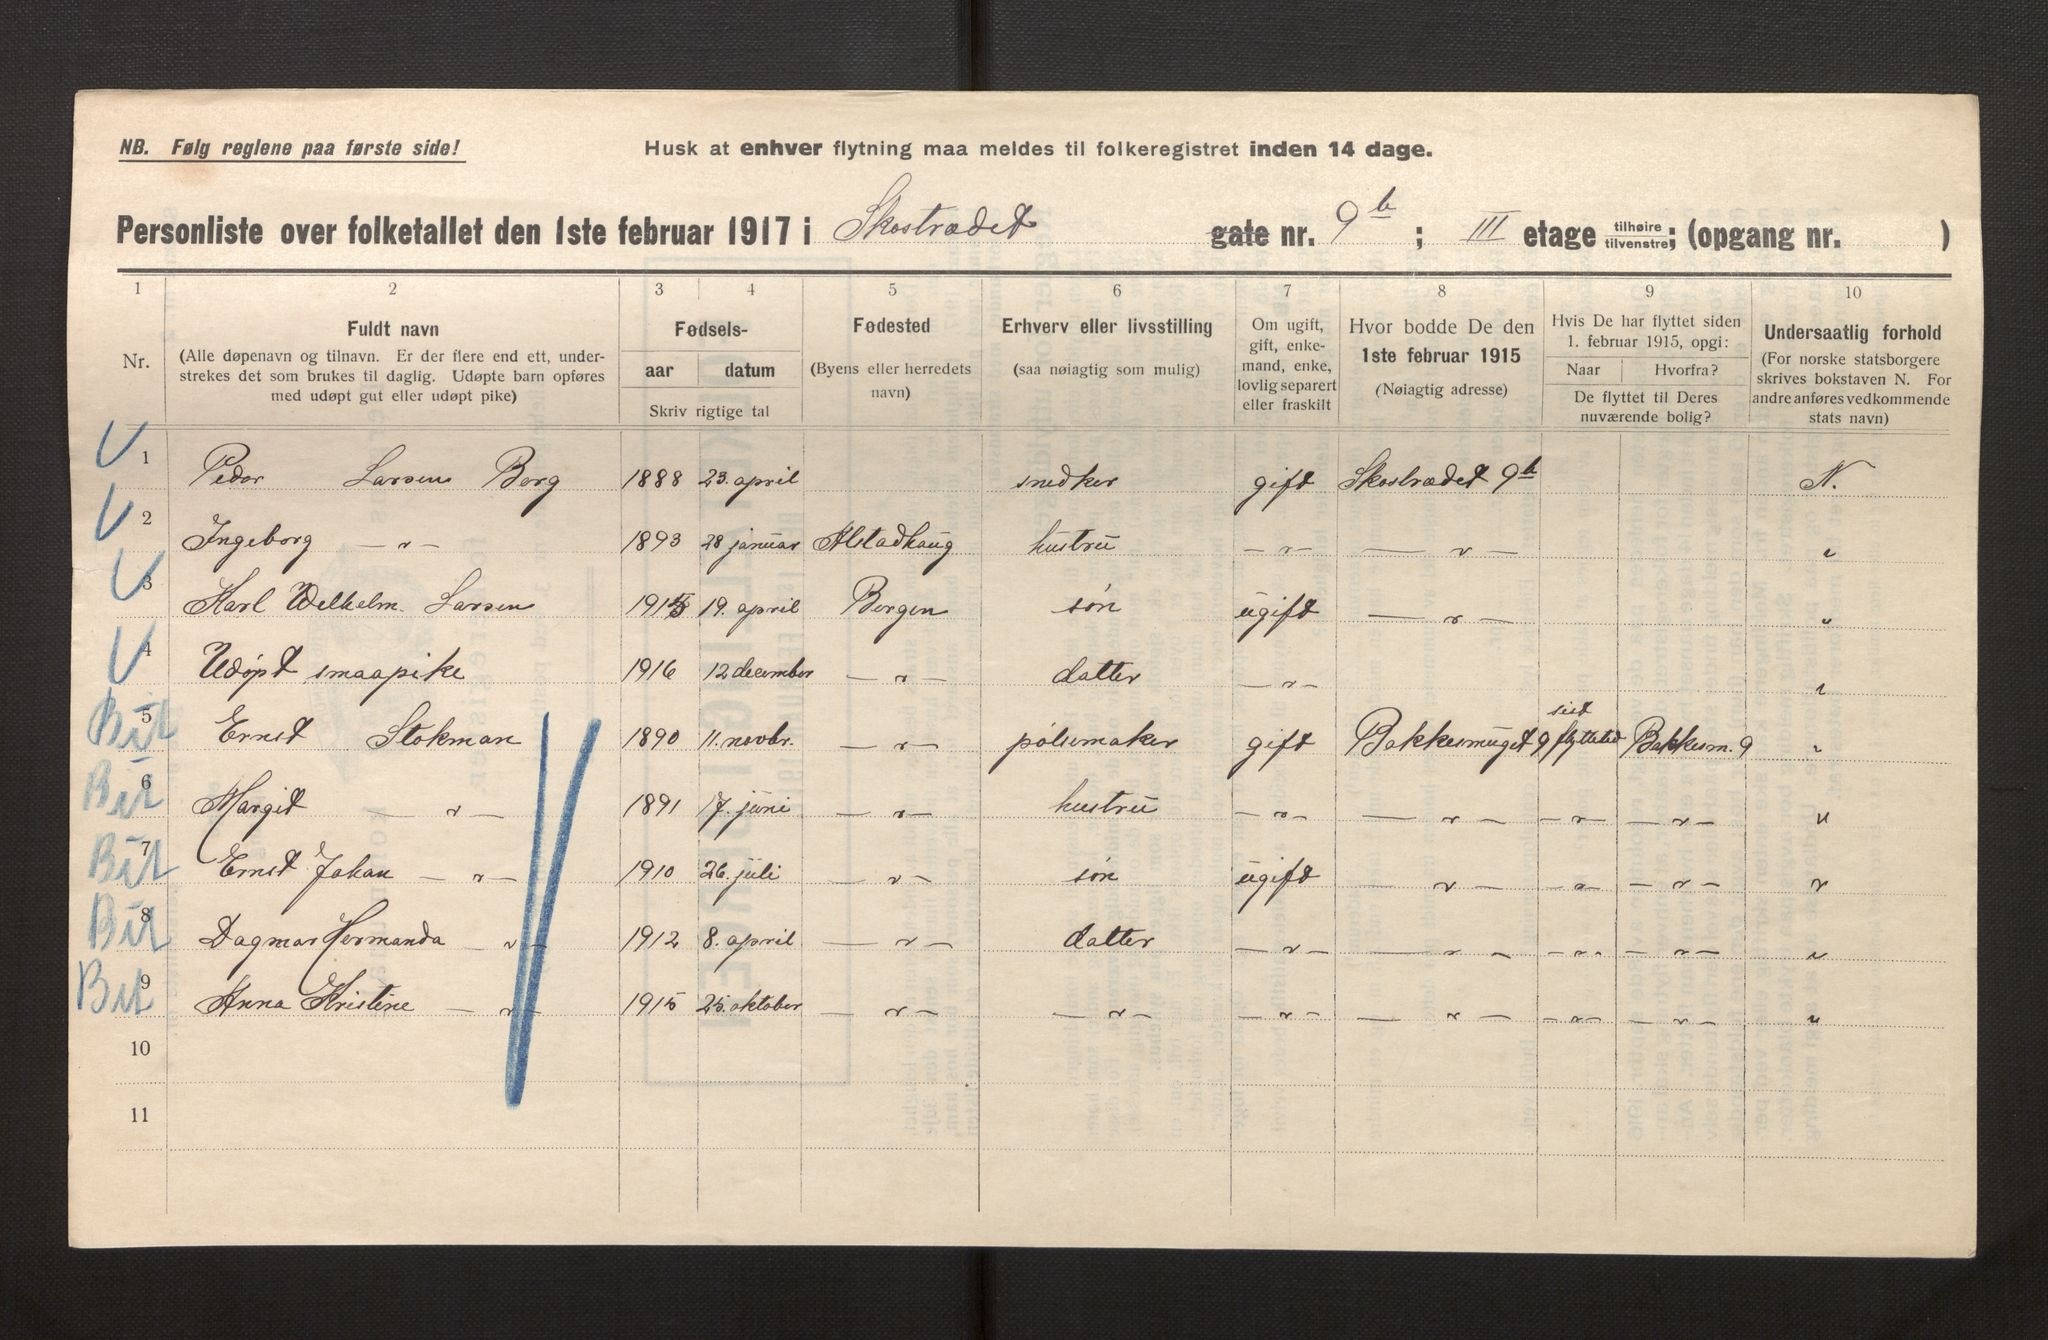 NB. Følg reglene paa første side!
Husk at enhver flytning maa meldes til folkeregistret inden 14 dage.
Personliste over folketallet den 1ste februar 1917 i Skostrædet gate nr. 9 b ; III etage tilhøire tilvenstre ; (opgang nr. )
1 2 3 4 5 6 7 8 9 10
Nr.
Fuldt navn
(Alle døpenavn og tilnavn. Er der flere end ett, under-
strekes det som brukes til daglig. Udøpte barn opføres
med udøpt gut eller udøpt pike)
Fødsels-
aar datum
Skriv rigtige tal
Fødested
(Byens eller herredets
navn)
Erhverv eller livsstilling
(saa nøiagtig som mulig)
Om ugift,
gift, enke-
mand, enke,
lovlig separert
eller fraskilt
Hvor bodde De den
1ste februar 1915
(Nøiagtig adresse)
Hvis De har flyttet siden
1. februar 1915, opgi:
Naar Hvorfra?
De flyttet til Deres
nuværende bolig?
Undersaatlig forhold
(For norske statsborgere
skrives bokstaven N. For
andre anføres vedkommende
stats navn)
V 1 Peder Larsen Berg 1888 23. april snedker gift Skostrædet 9 b N.
V 2 Ingeborg — " — 1893 28 januar Alstadhaug hustru — " — — " — "
V 3 Karl Wilhelm Larsen 1915 19. april Bergen søn ugift — " — "
V 4 Udøpt smaapike 1916 12 december — " — datter — " — "
But 5 Ernst Stokman 1890 11. novbr. — " — pølsemaker gift Bakkesmuget 9 sist flyttetid Bakkesm. 9 "
But 6 Margit — " — 1891 17. juni — " — hustru — " — — " — — " — — " — "
But 7 Ernst Johan — " — 1910 26. juli — " — søn ugift — " — — " — — " — "
But 8 Dagmar Hermanda — " — 1912 8. april — " — datter — " — — " — — " — — " — "
But 9 Anna Kristine — " — 1915 25. oktober — " — — " — — " — — " — — " — — " — "
10
11